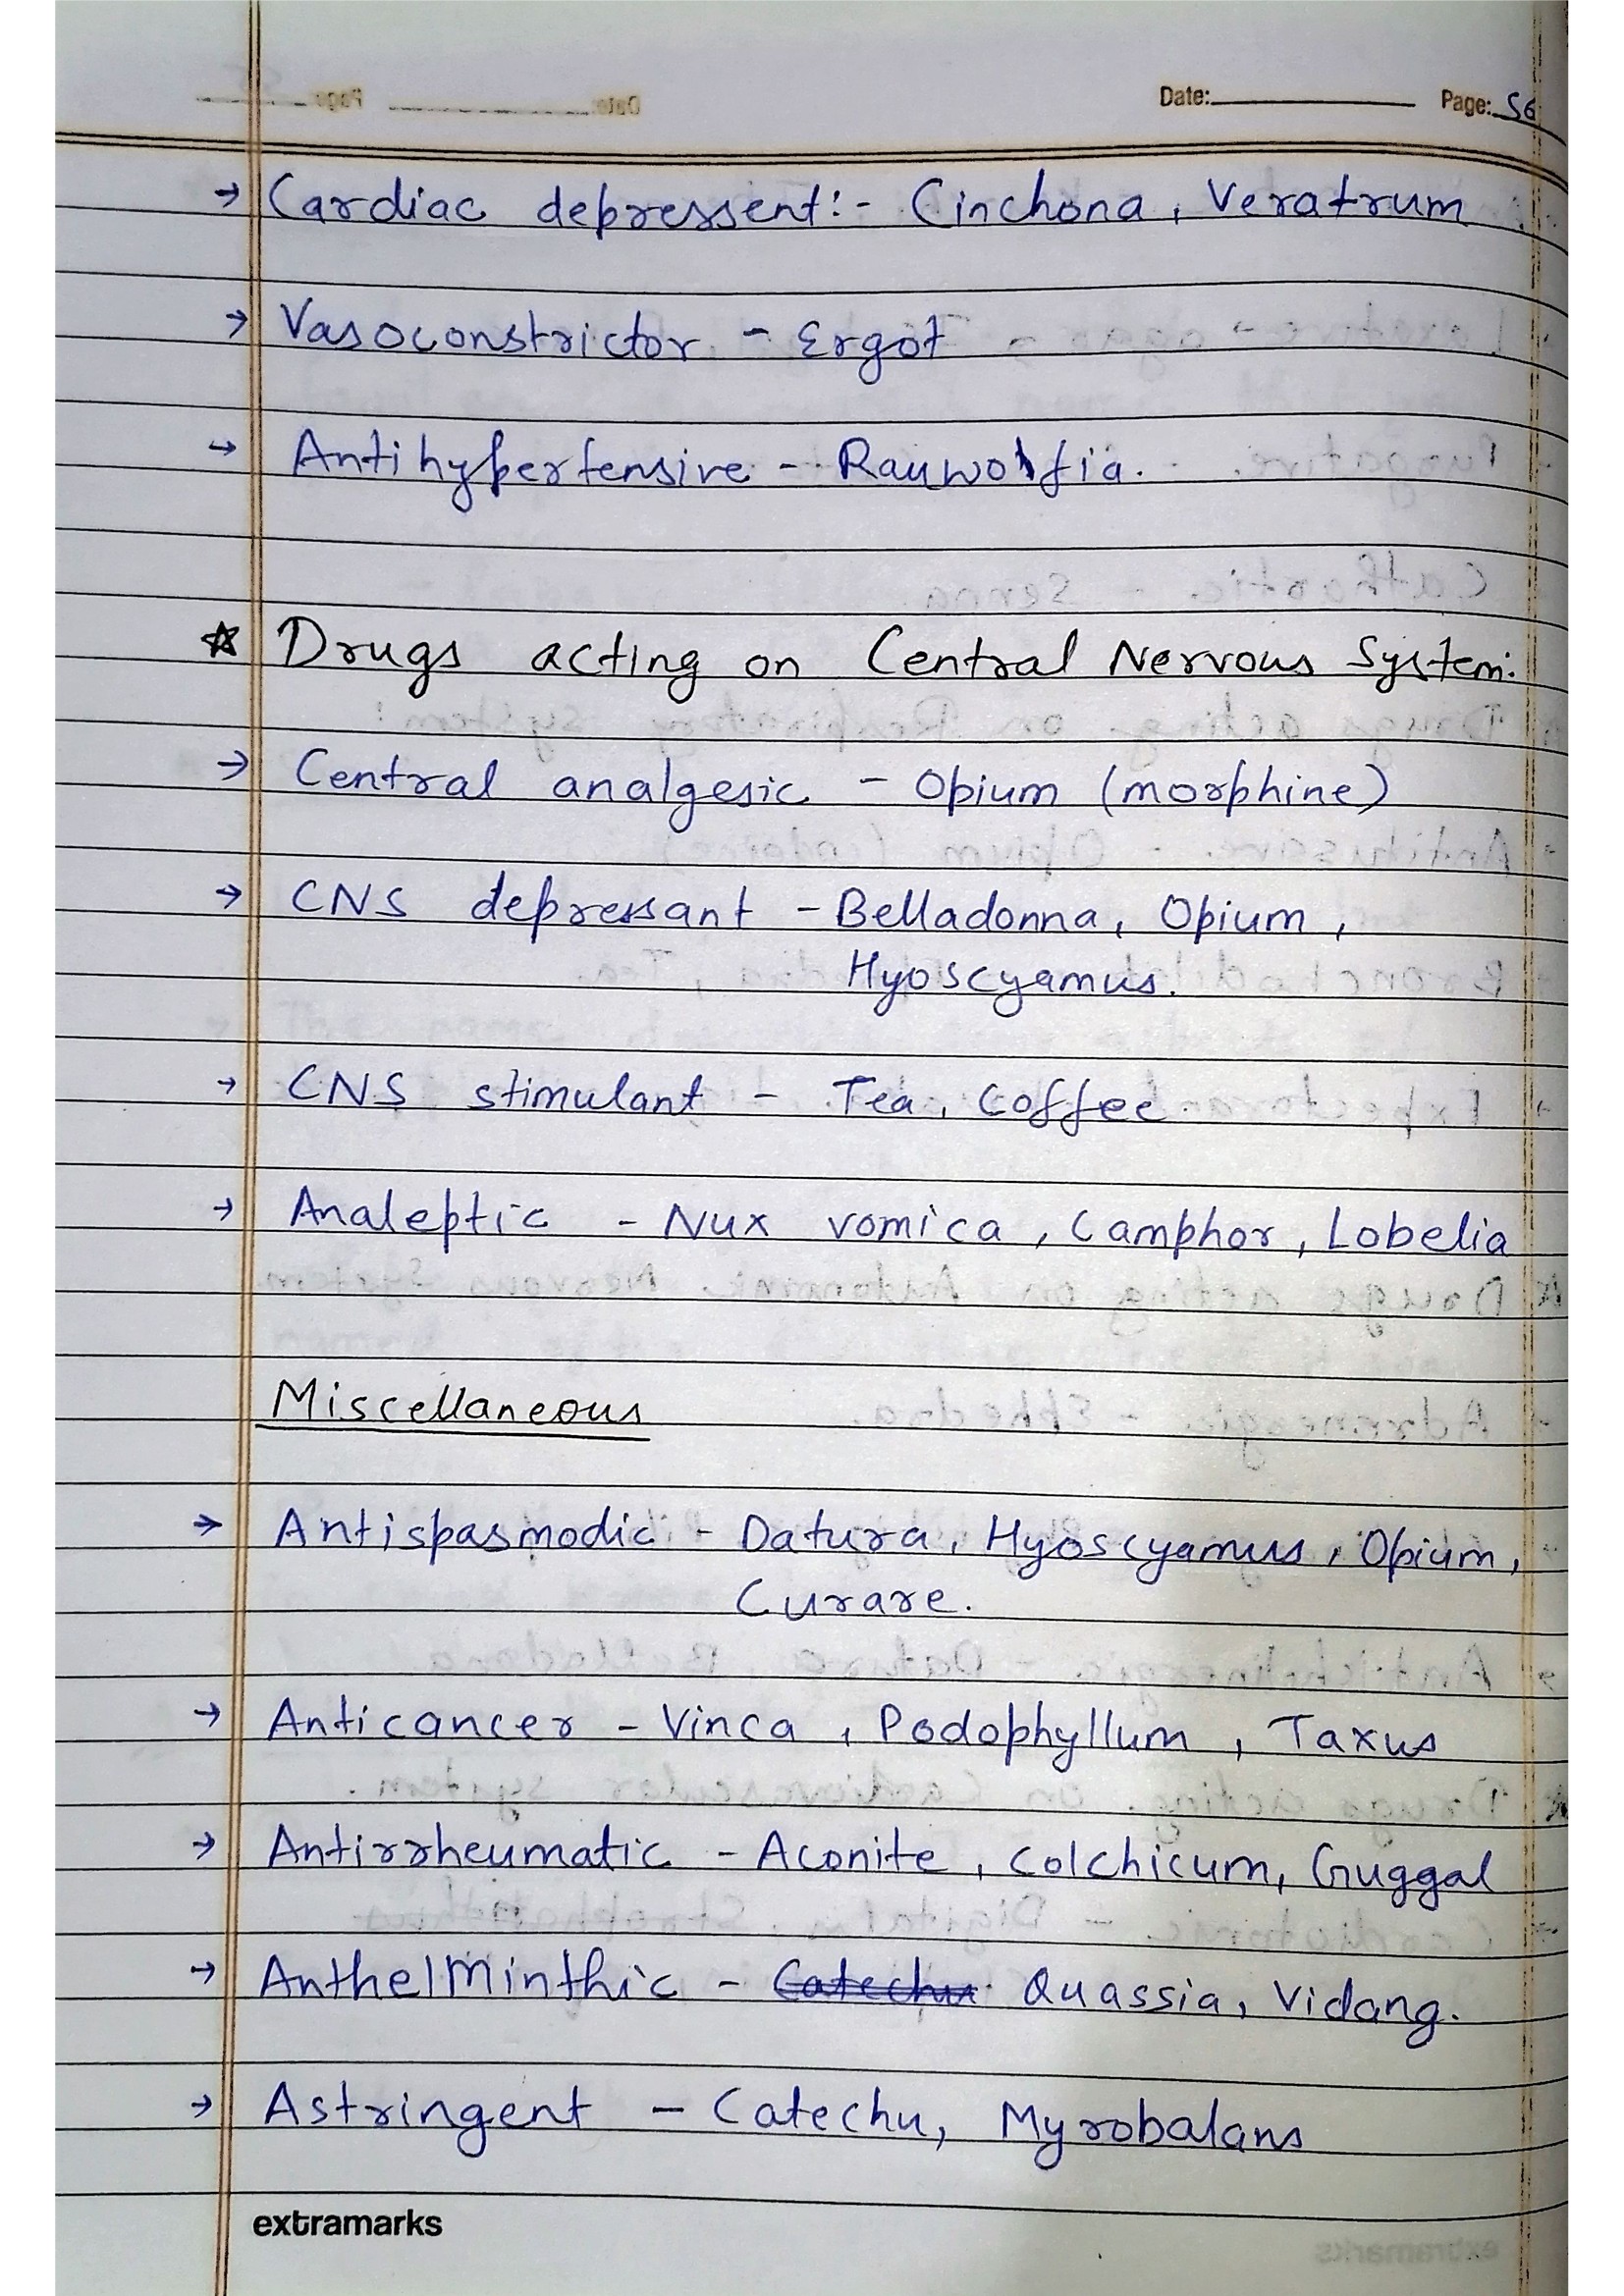 Date: Page: 56
→ Cardiac depressent:- Cinchona, Veratrum
→ Vasoconstrictor - Ergot
→ Antihypertensive - Rauwolfia.
☆ Drugs acting on Central Nervous System:
→ Central analgesic - Opium (morphine)
→ CNS depressant - Belladonna, Opium,
Hyoscyamus.
→ CNS stimulant - Tea, Coffee.
→ Analeptic - Nux vomica, Camphor, Lobelia
Miscellaneous
→ Antispasmodic - Datura, Hyoscyamus, Opium,
Curare.
→ Anticancer - Vinca, Podophyllum, Taxus
→ Antirrheumatic - Aconite, Colchicum, Guggal
→ Anthelminthic - Catechu Quassia, Vidang.
→ Astringent - Catechu, Myrobalans
extramarks